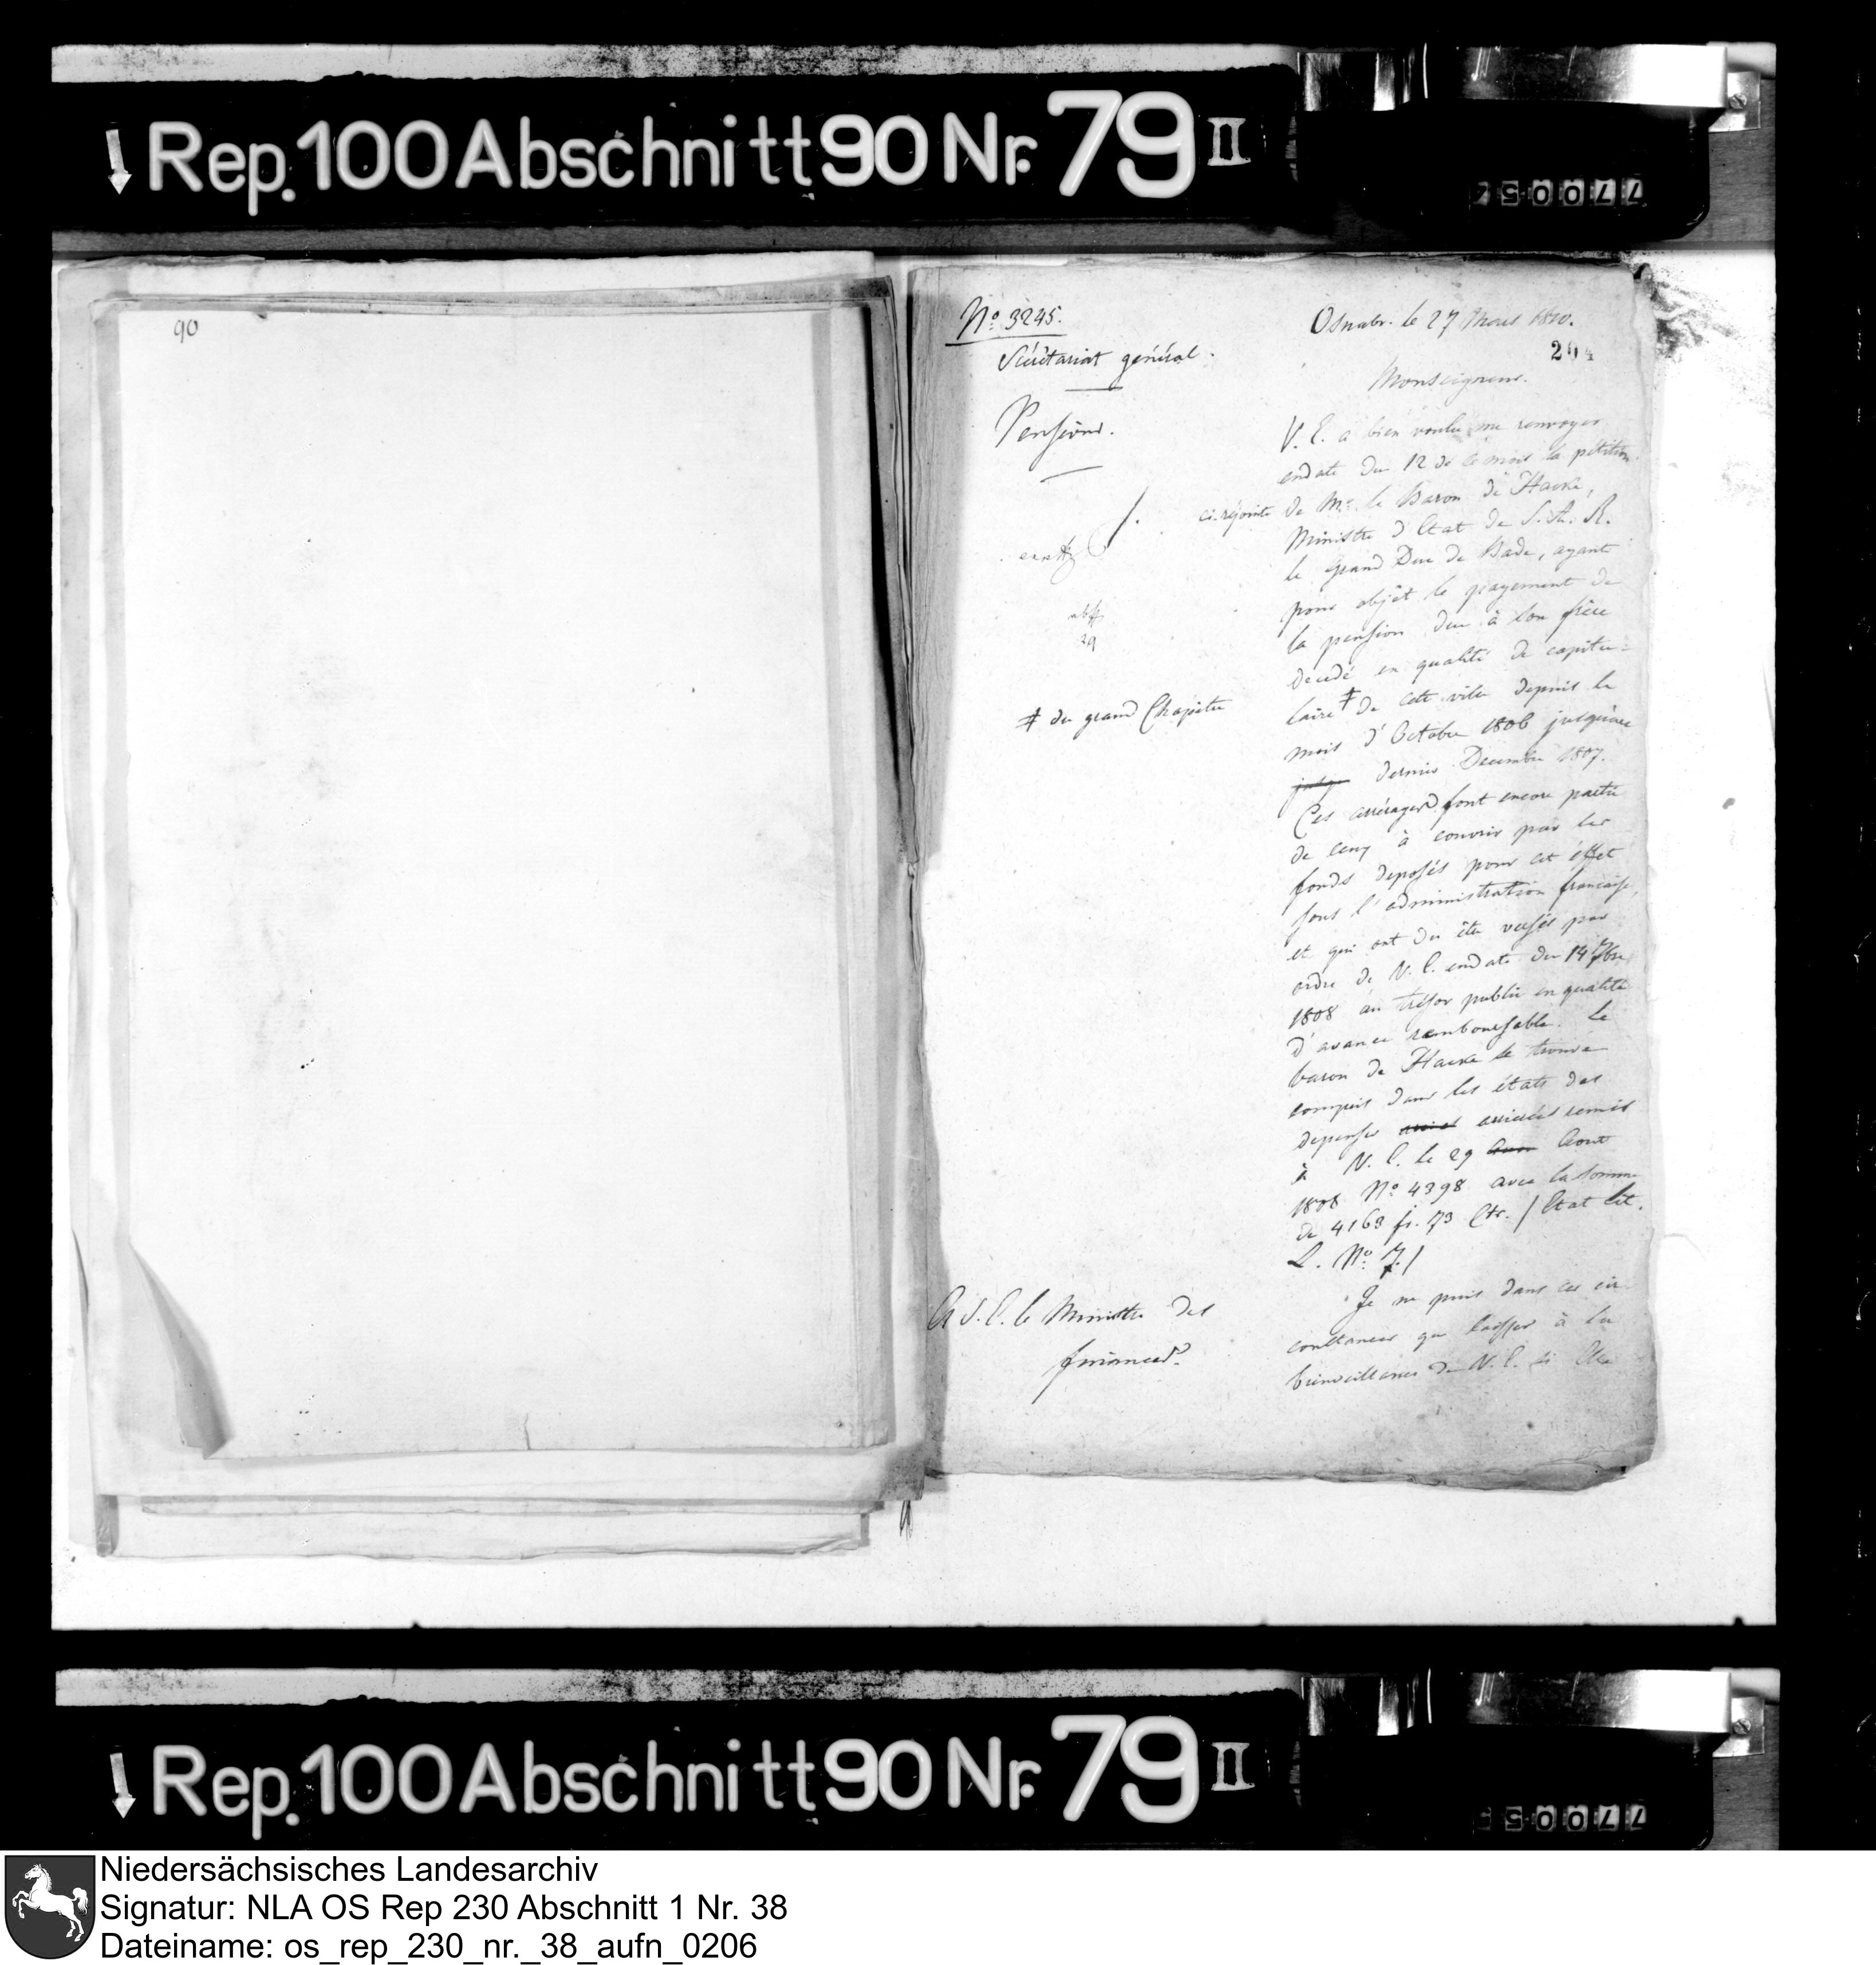 Rep. 100 Abschnitt 90 Nr. 79 II
77005
90
No. 3245.
Osnabr. le 27 Mars 1810.
204
Secrétariat général.
Monseigneur.
Pensions.
V. E. a bien voulu me renvoyer
endate du 12 de ce mois la pétition
ci-rejointe de Mr. le Baron de Hacke,
Ministre d'Etat de S. A. R.
le Grand Duc de Bade, ayant
pour objèt le payement de
la pension due à son frère
decedé en qualité de capitu=
laire ‡ de cette ville depuis le
‡ du grand Chapitre
mois d'Octobre 1806 jusqu'au
dernier Decembre 1807.
Ces arrérages font encore partie
de ceux à couvrir par les
fonds deposés pour cet éffet
sous l'administration française,
et qui ont du être versés par
ordre de V. E. endate du 14 7bre
1808 au trésor public en qualité
d'avance remboursable. Le
baron de Hacke se trouve
compris dans les états des
depenses arriérées remis
à V. E. le 29 Aout
1808 No. 4398 avec la somme
de 4163 fr. 73 Cts. / Etat Lit.
L. No. 7. /
Je ne puis dans ces cir-
constances que laisser à la
bienveillance de V. E. si Elle
A S. E. le Ministre des
finances.
Rep. 100 Abschnitt 90 Nr. 79 II
77005
Niedersächsisches Landesarchiv
Signatur: NLA OS Rep 230 Abschnitt 1 Nr. 38
Dateiname: os_rep_230_nr._38_aufn_0206